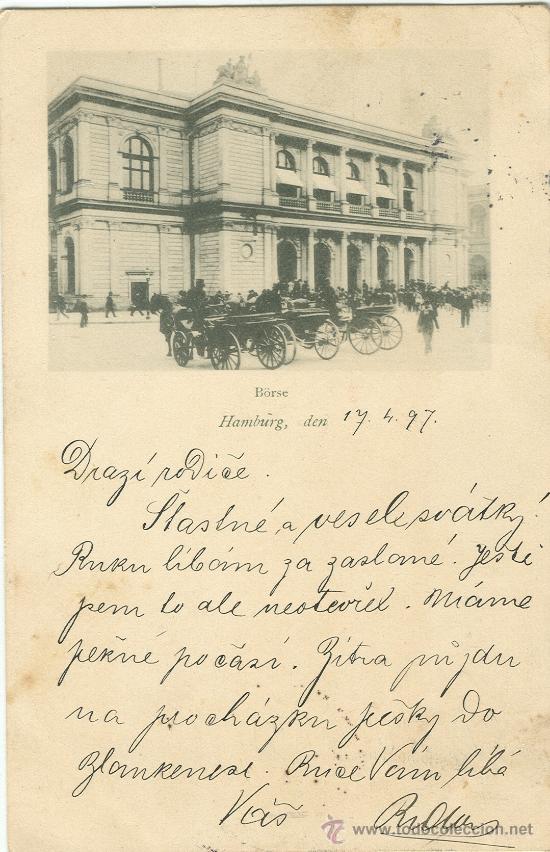 Börse
Hamburg, den 17. 4. 97.
Drazí rodiče.
Šťastné a veselé svátky!
Ruku líbám za zaslané. Ještě
jsem to ale neotevřel. Máme
pěkné počasí. Zítra půjdu
na procházku pěšky do
Blankenese. Ruce Vám líbá
Váš
www.todocoleccion.net